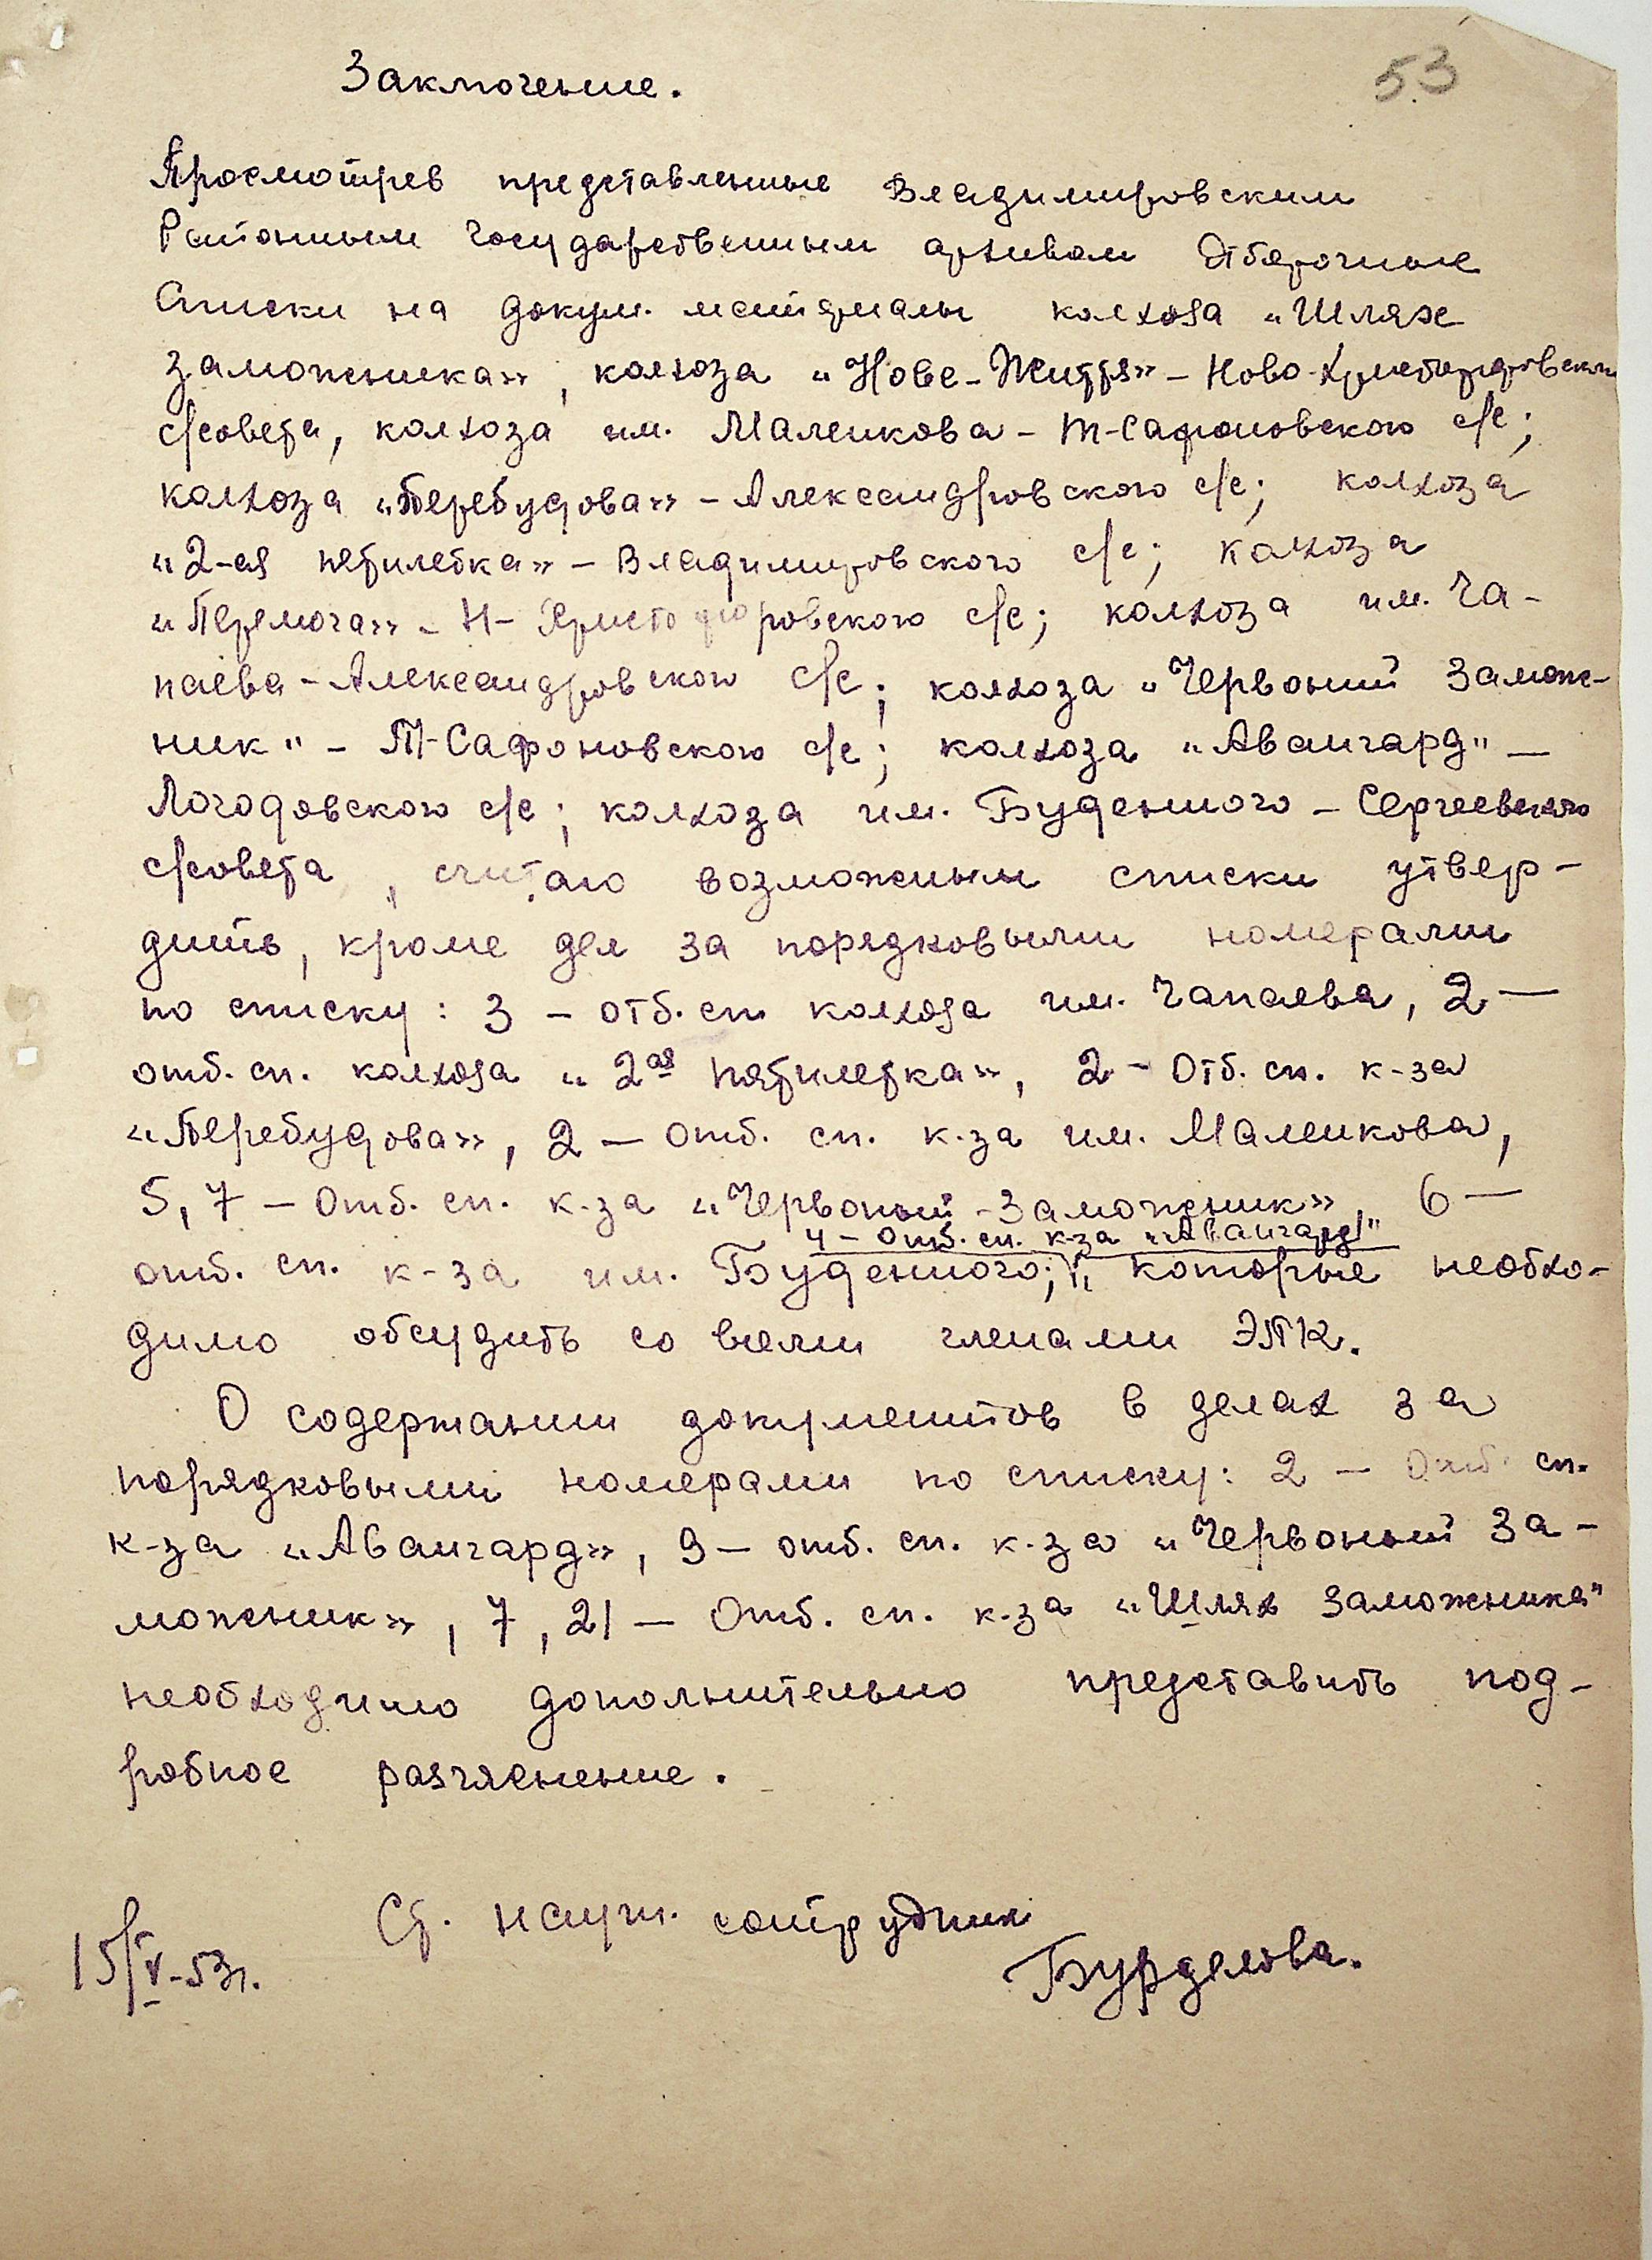 53
Заключение.
Просмотрев представленные Владимировским
Районным Государственным архивом Отборочные
Списки на докум. материалы колхоза «Шлях
заможника», колхоза «Нове-Життя» – Ново-Христофоровского
с/совета, колхоза им. Маленкова – т-Сафоновского с/с;
колхоза «Перебудова» – Александровского с/с; колхоза
«2-ая пятилетка» – Владимировского с/с; колхоза
«Перемога» – Н-Христофоровского с/с; колхоза им. Ча-
паева – Александровского с/с; колхоза „Червоный Замож-
ник" – П-Сафоновского с/с; колхоза „Авангард" –
с/с; колхоза им. Буденного – Сергеевского
с/совета, считаю возможным списки утвер-
дить, кроме дел за порядковыми номерами
по списку: 3 – отб. сп колхоза им. Чапаева, 2 –
отб. сп. колхоза «2ая пятилетка», 2 – Отб. сп. к-за
«Перебудова», 2 – отб. сп. к-за им. Маленкова,
5, 7 – Отб. сп. к-за «Червоный-Заможник», 6 –
4 – Отб. сп. к-за „Авангард"
отб. сп. к-за им. Буденного; которые необхо-
димо обсудить со всеми членами ЭПК.
О содержании документов в делах за
порядковыми номерами по списку: 2 – Отб. сп.
к-за «Авангард», 9 – отб. сп. к-за «Червоный За-
можник», 7, 21 – Отб. сп. к-за „Шлях заможника"
необходимо дополнительно представить под-
робное разъяснение.
Ст. научн. сотрудник
15/V-53г.
Бурделова.